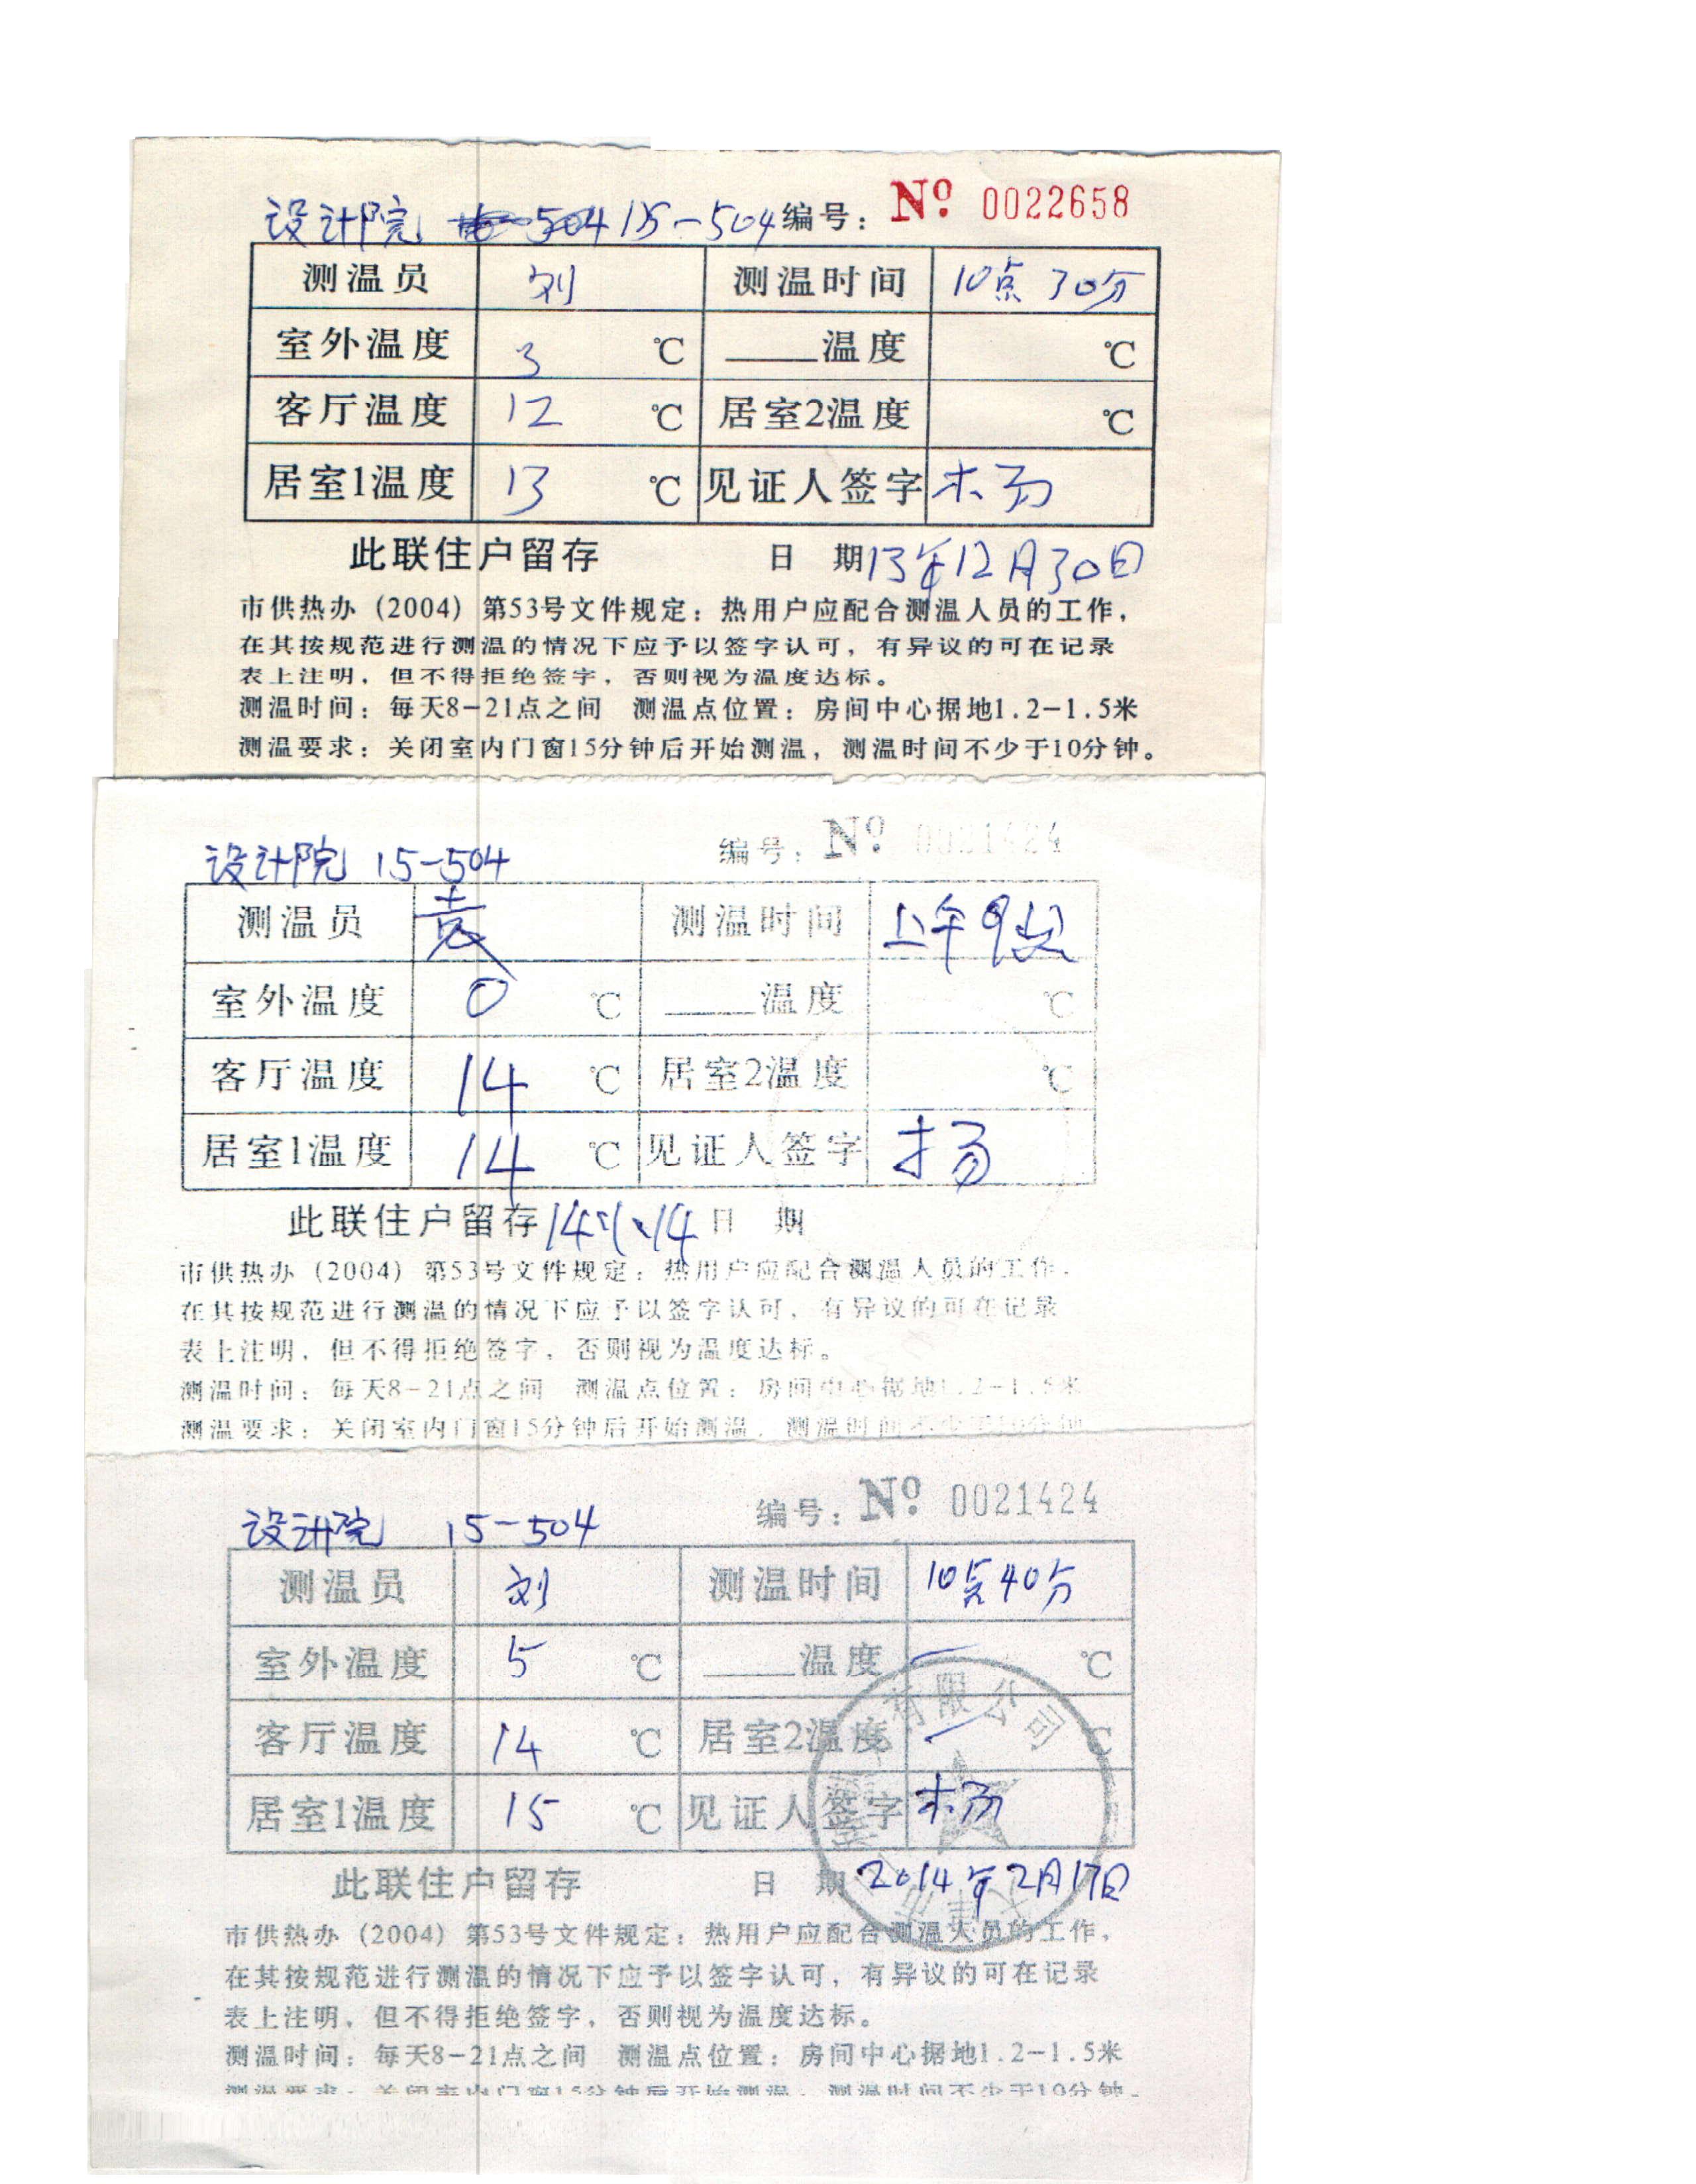 设计院 15-504 编号: Nº 0022658
测温员 刘 测温时间 10点30分
室外温度 3 ℃ ____温度 ℃
客厅温度 12 ℃ 居室2温度 ℃
居室1温度 13 ℃ 见证人签字 杨
此联住户留存 日 期 13年12月30日
市供热办（2004）第53号文件规定：热用户应配合测温人员的工作，
在其按规范进行测温的情况下应予以签字认可，有异议的可在记录
表上注明，但不得拒绝签字，否则视为温度达标。
测温时间：每天8-21点之间 测温点位置：房间中心据地1.2-1.5米
测温要求：关闭室内门窗15分钟后开始测温，测温时间不少于10分钟。
设计院 15-504 编号: Nº 0021424
测温员 袁 测温时间 上午9点
室外温度 0 ℃ ____温度 ℃
客厅温度 14 ℃ 居室2温度 ℃
居室1温度 14 ℃ 见证人签字 杨
此联住户留存 14、1、14 日 期
市供热办（2004）第53号文件规定：热用户应配合测温人员的工作，
在其按规范进行测温的情况下应予以签字认可，有异议的可在记录
表上注明，但不得拒绝签字，否则视为温度达标。
测温时间：每天8-21点之间 测温点位置：房间中心据地1.2-1.5米
测温要求：关闭室内门窗15分钟后开始测温，测温时间不少于10分钟
设计院 15-504 编号: Nº 0021424
测温员 刘 测温时间 10点40分
室外温度 5 ℃ ____温度 — ℃
客厅温度 14 ℃ 居室2温度 — ℃
居室1温度 15 ℃ 见证人签字 杨
有限公司
此联住户留存 日 期 2014年2月17日
市供热办（2004）第53号文件规定：热用户应配合测温人员的工作，
在其按规范进行测温的情况下应予以签字认可，有异议的可在记录
表上注明，但不得拒绝签字，否则视为温度达标。
测温时间：每天8-21点之间 测温点位置：房间中心据地1.2-1.5米
测温要求：关闭室内门窗15分钟后开始测温，测温时间不少于10分钟。